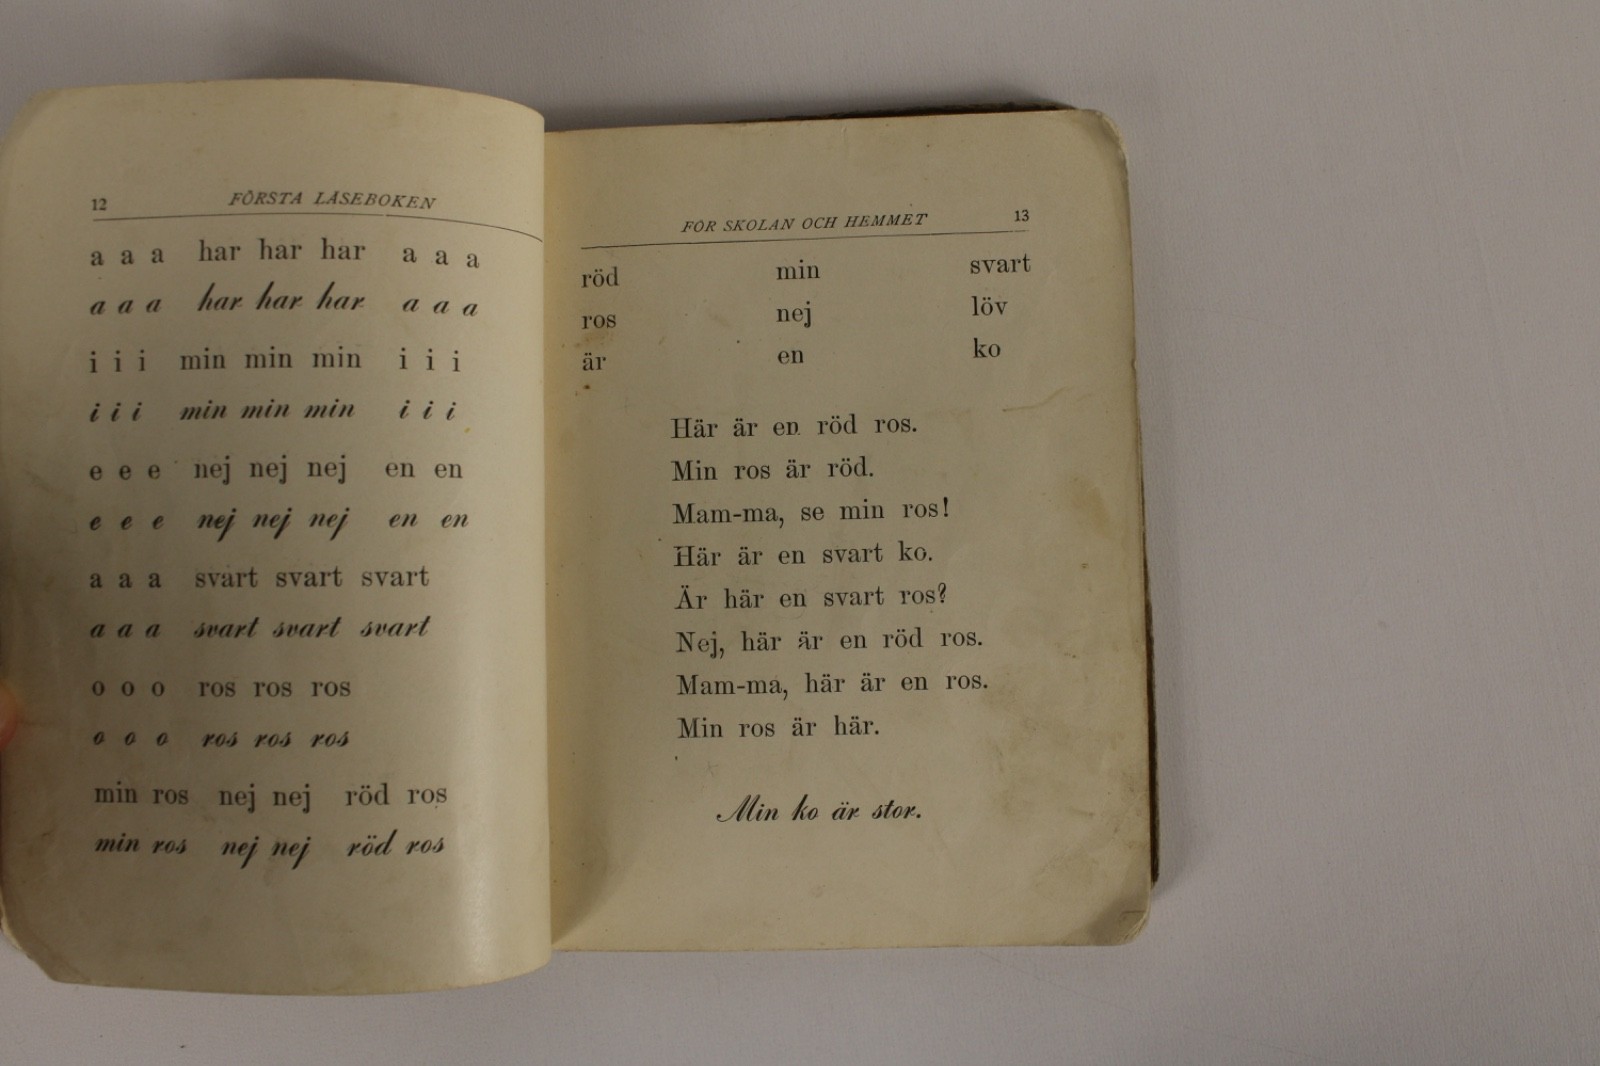 12 FÖRSTA LÄSEBOKEN
a a a har har har a a a
a a a har har har a a a
i i i min min min i i i
i i i min min min i i i
e e e nej nej nej en en
e e e nej nej nej en en
a a a svart svart svart
a a a svart svart svart
o o o ros ros ros
o o o ros ros ros
min ros nej nej röd ros
min ros nej nej röd ros
FÖR SKOLAN OCH HEMMET 13
röd min svart
ros nej löv
är en ko
Här är en röd ros.
Min ros är röd.
Mam-ma, se min ros!
Här är en svart ko.
Är här en svart ros?
Nej, här är en röd ros.
Mam-ma, här är en ros.
Min ros är här.
Min ko är stor.